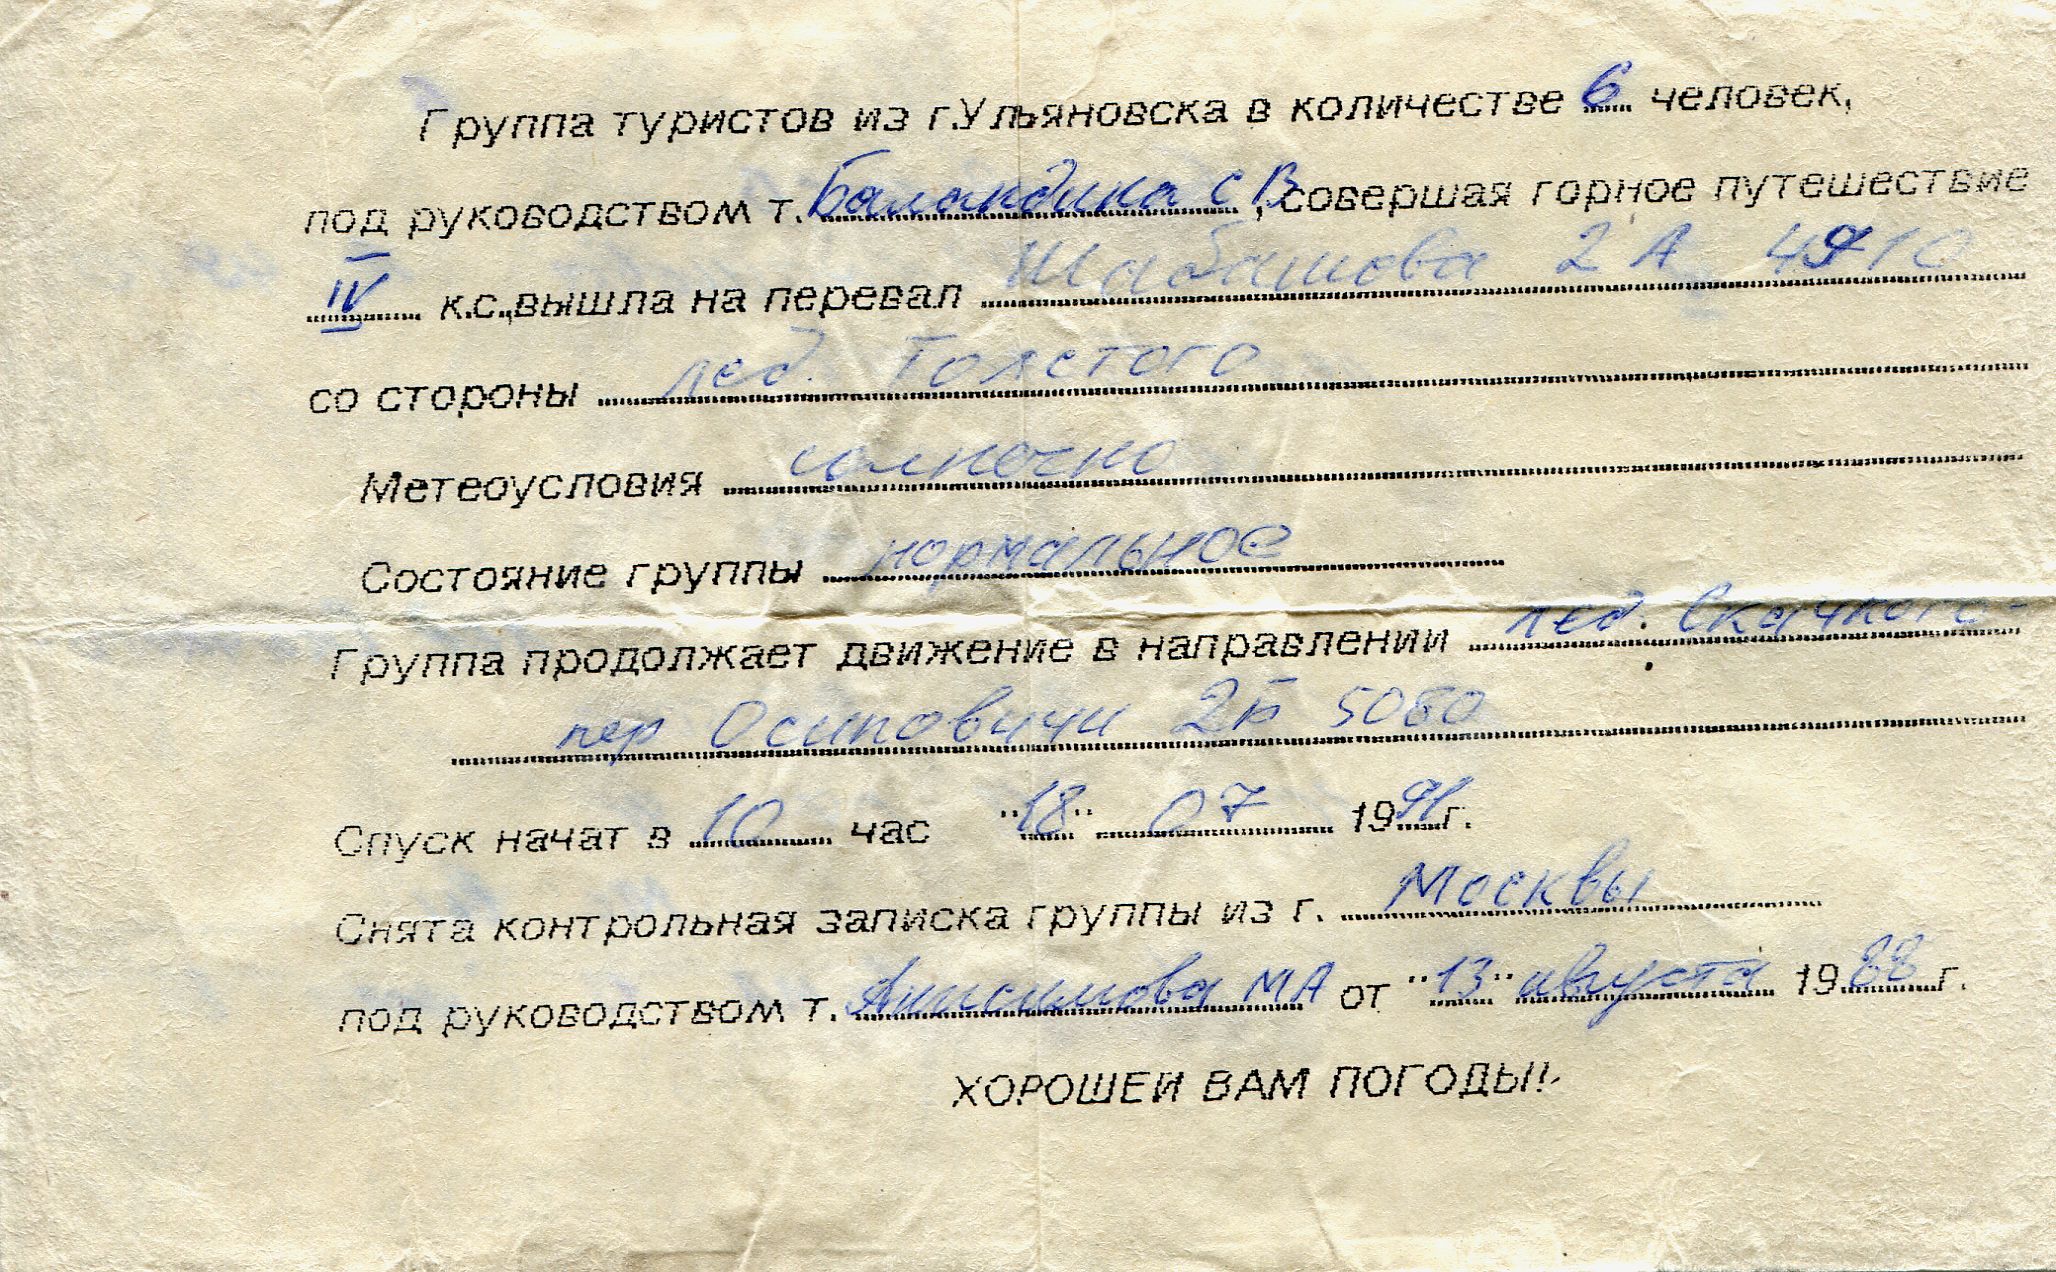 Группа туристов из г.Ульяновска в количестве 6 человек,
под руководством т. Баландина С В, совершая горное путешествие
IV к.с.,вышла на перевал Шабашова 2А 4910
со стороны лед. Толстого
Метеоусловия солнечно
Состояние группы нормальное
Группа продолжает движение в направлении лед. Скачкого-
пер Осиповичи 2Б 5050
Спуск начат в 10 час "18" 07 1991г.
Снята контрольная записка группы из г. Москвы
под руководством т. Анисимова МА от "13" августа 1988г.
ХОРОШЕЙ ВАМ ПОГОДЫ!!